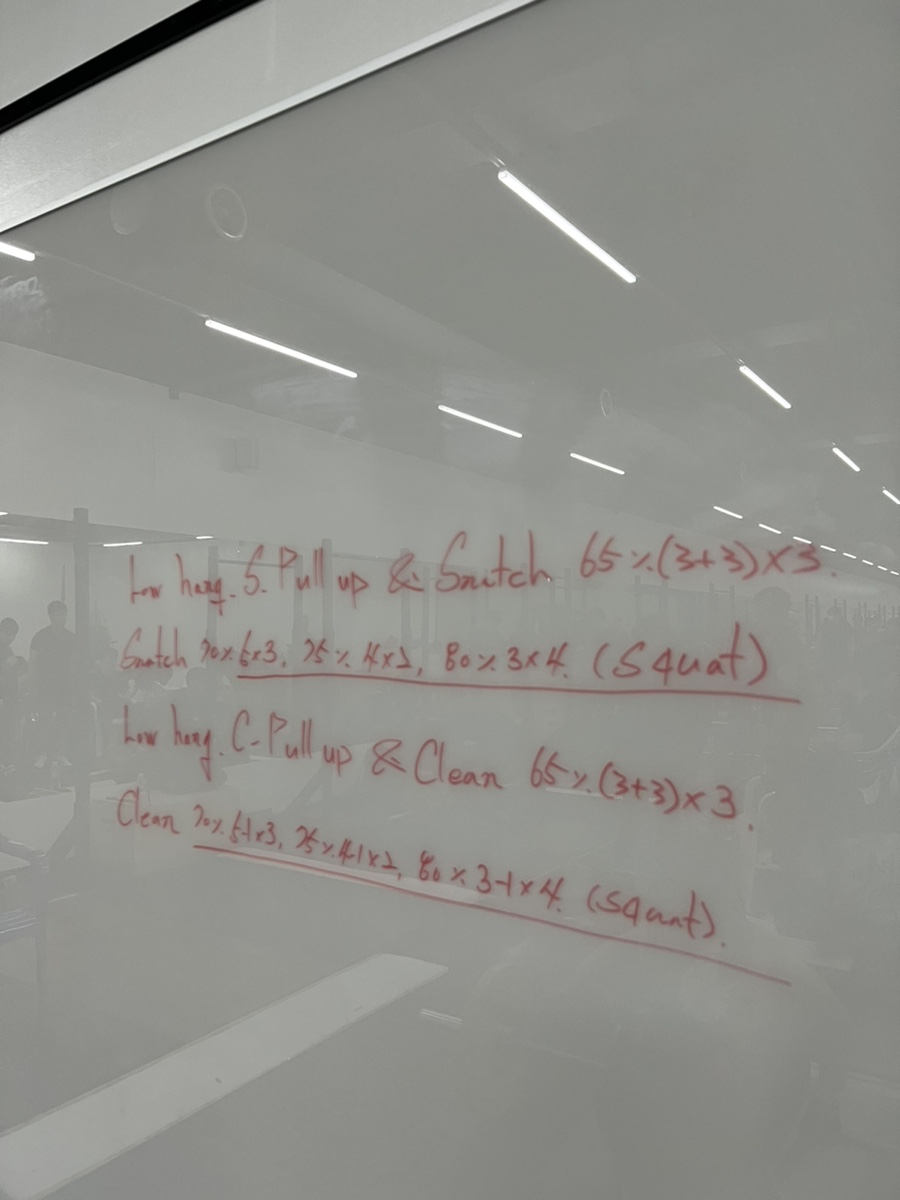 Low hang. S. Pull up & Snatch 65%(3+3)×3.
Snatch 70% 5×3, 75% 4×2, 80% 3×4. (Squat)
Low hang. C-Pull up & Clean 65%(3+3)×3.
Clean 70% 5-1×3, 75% 4-1×2, 80% 3-1×4. (Squat).